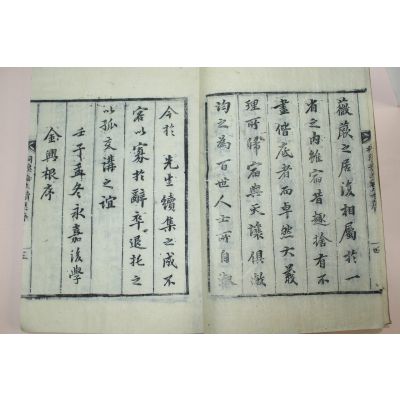 薇蕨之居後相屬於一
省之內雖宿昔趣捨有不
盡偕底者而卓然大義
理所歸宿與天讓俱澈
均之為百世人士所自淑
今於 先生續集之成不
容以寡於辭卒退托之
以孤交講之誼
壬子孟冬永嘉後學
金興根序